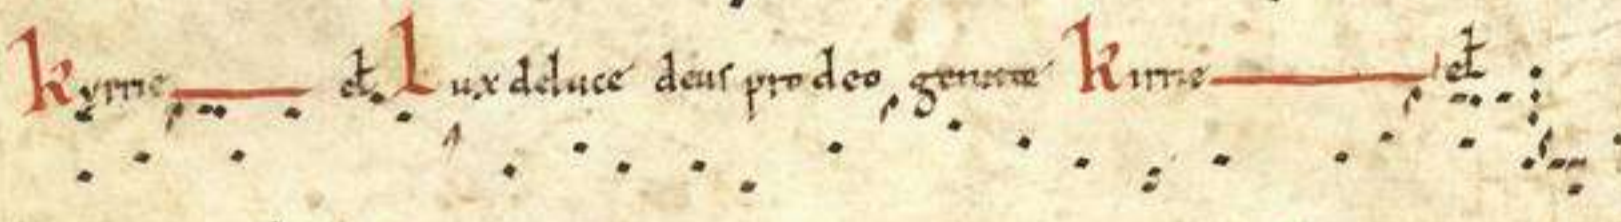 Kyrrie el. Lux deluce deus pro deo genite Kirrie el